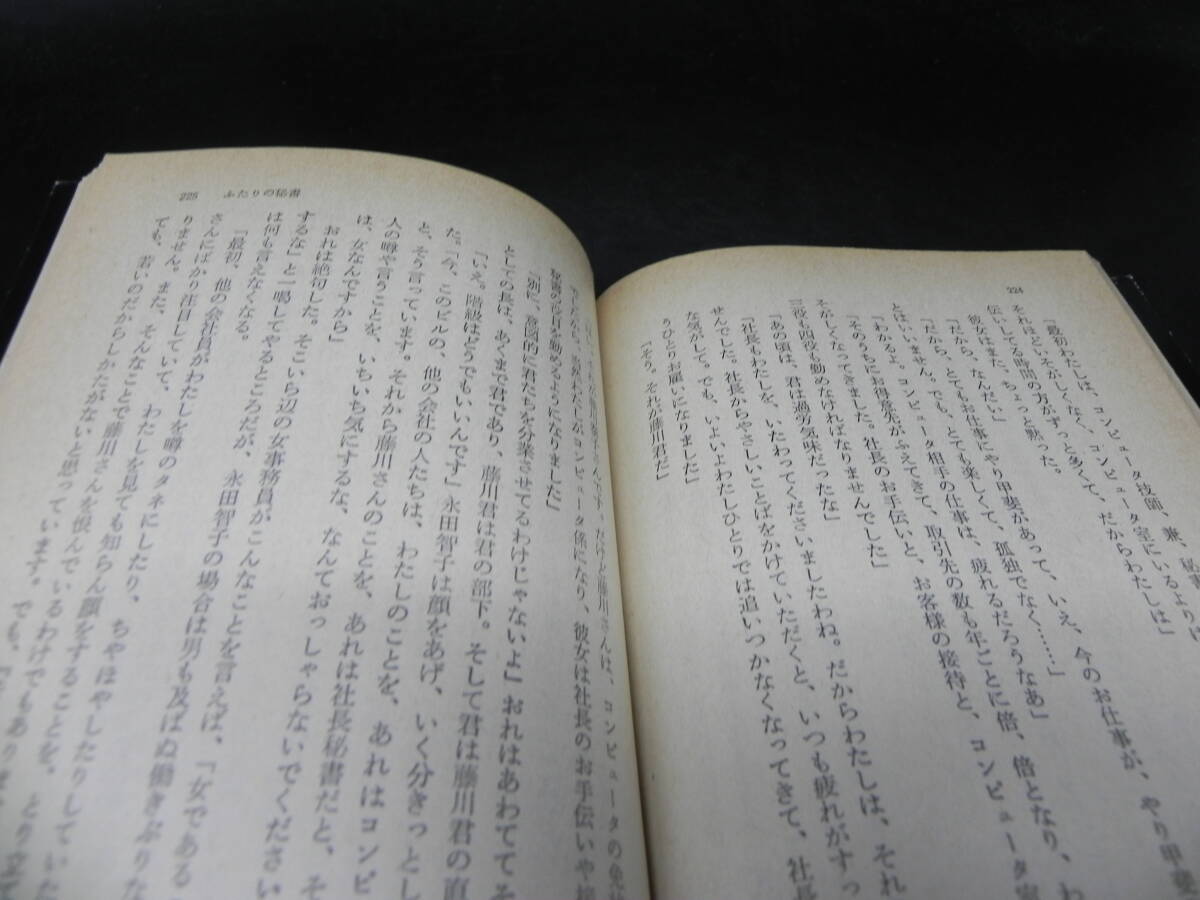 224
「最初わたしは、コンピュータ技師、兼、秘
それほどいそがしくなく、コンピュータ室にいるよりは
伝いしてる時間の方がずっと多くて、だからわたしは」
彼女はまた、ちょっと黙った。
「だから、なんだい」
「だから、とてもお仕事にやり甲斐があって、いえ、今のお仕事が、やり甲斐
とはいいません。でも、とても楽しくて、孤独でなく……」
「わかるよ。コンピュータ相手の仕事は、疲れるだろうなあ」
「そのうちにお得意先がふえてきて、取引先の数も年ごとに倍、倍となり、わ
そがしくなってきました。社長のお手伝いと、お客様の接待と、コンピュータ室
三役も四役も勤めなければなりませんでした」
「あの頃は、君は過労気味だったな」
「社長もわたしを、いたわってくださいましたわね。だからわたしは、それ
せんでした。社長からやさしいことばをかけていただくと、いつも疲れがすっ
な気がして。でも、いよいよわたしひとりでは追いつかなくなってきて、社長
うひとりお雇いになりました」
「そう。それが藤川君だ」
225 ふたりの秘書
だけど藤川さんは、コンピュータの免
わたしがコンピュータ係になり、彼女は社長のお手伝いや接
秘書の役目を勤めるようになりました」
「別に、意識的に君たちを分業させてるわけじゃないよ」おれはあわててそ
としての長は、あくまで君であり、藤川君は君の部下。そして君は藤川君の直
「いえ。階級はどうでもいいんです」永田智子は顔をあげ、いく分きっとし
だ。「今、このビルの、他の会社の人たちは、わたしのことを、あれはコンピ
と、そう言っています。それから藤川さんのことを、あれは社長秘書だと、そ
人の噂や言うことを、いちいち気にするな、なんておっしゃらないでください
は、女なんですから」
おれは絶句した。そこいら辺の女事務員がこんなことを言えば、「女である
するな」と一喝してやるところだが、永田智子の場合は男も及ばぬ働きぶりだ
は何も言えなくなる。
「最初、他の会社員がわたしを噂のタネにしたり、ちやほやしたりしていた
さんにばかり注目していて、わたしを見ても知らん顔をすることを、とり立て
りません。また、そんなことで藤川さんを恨んでいるわけでもありま
ても、若いのだからしかたがないと思っています。でも、